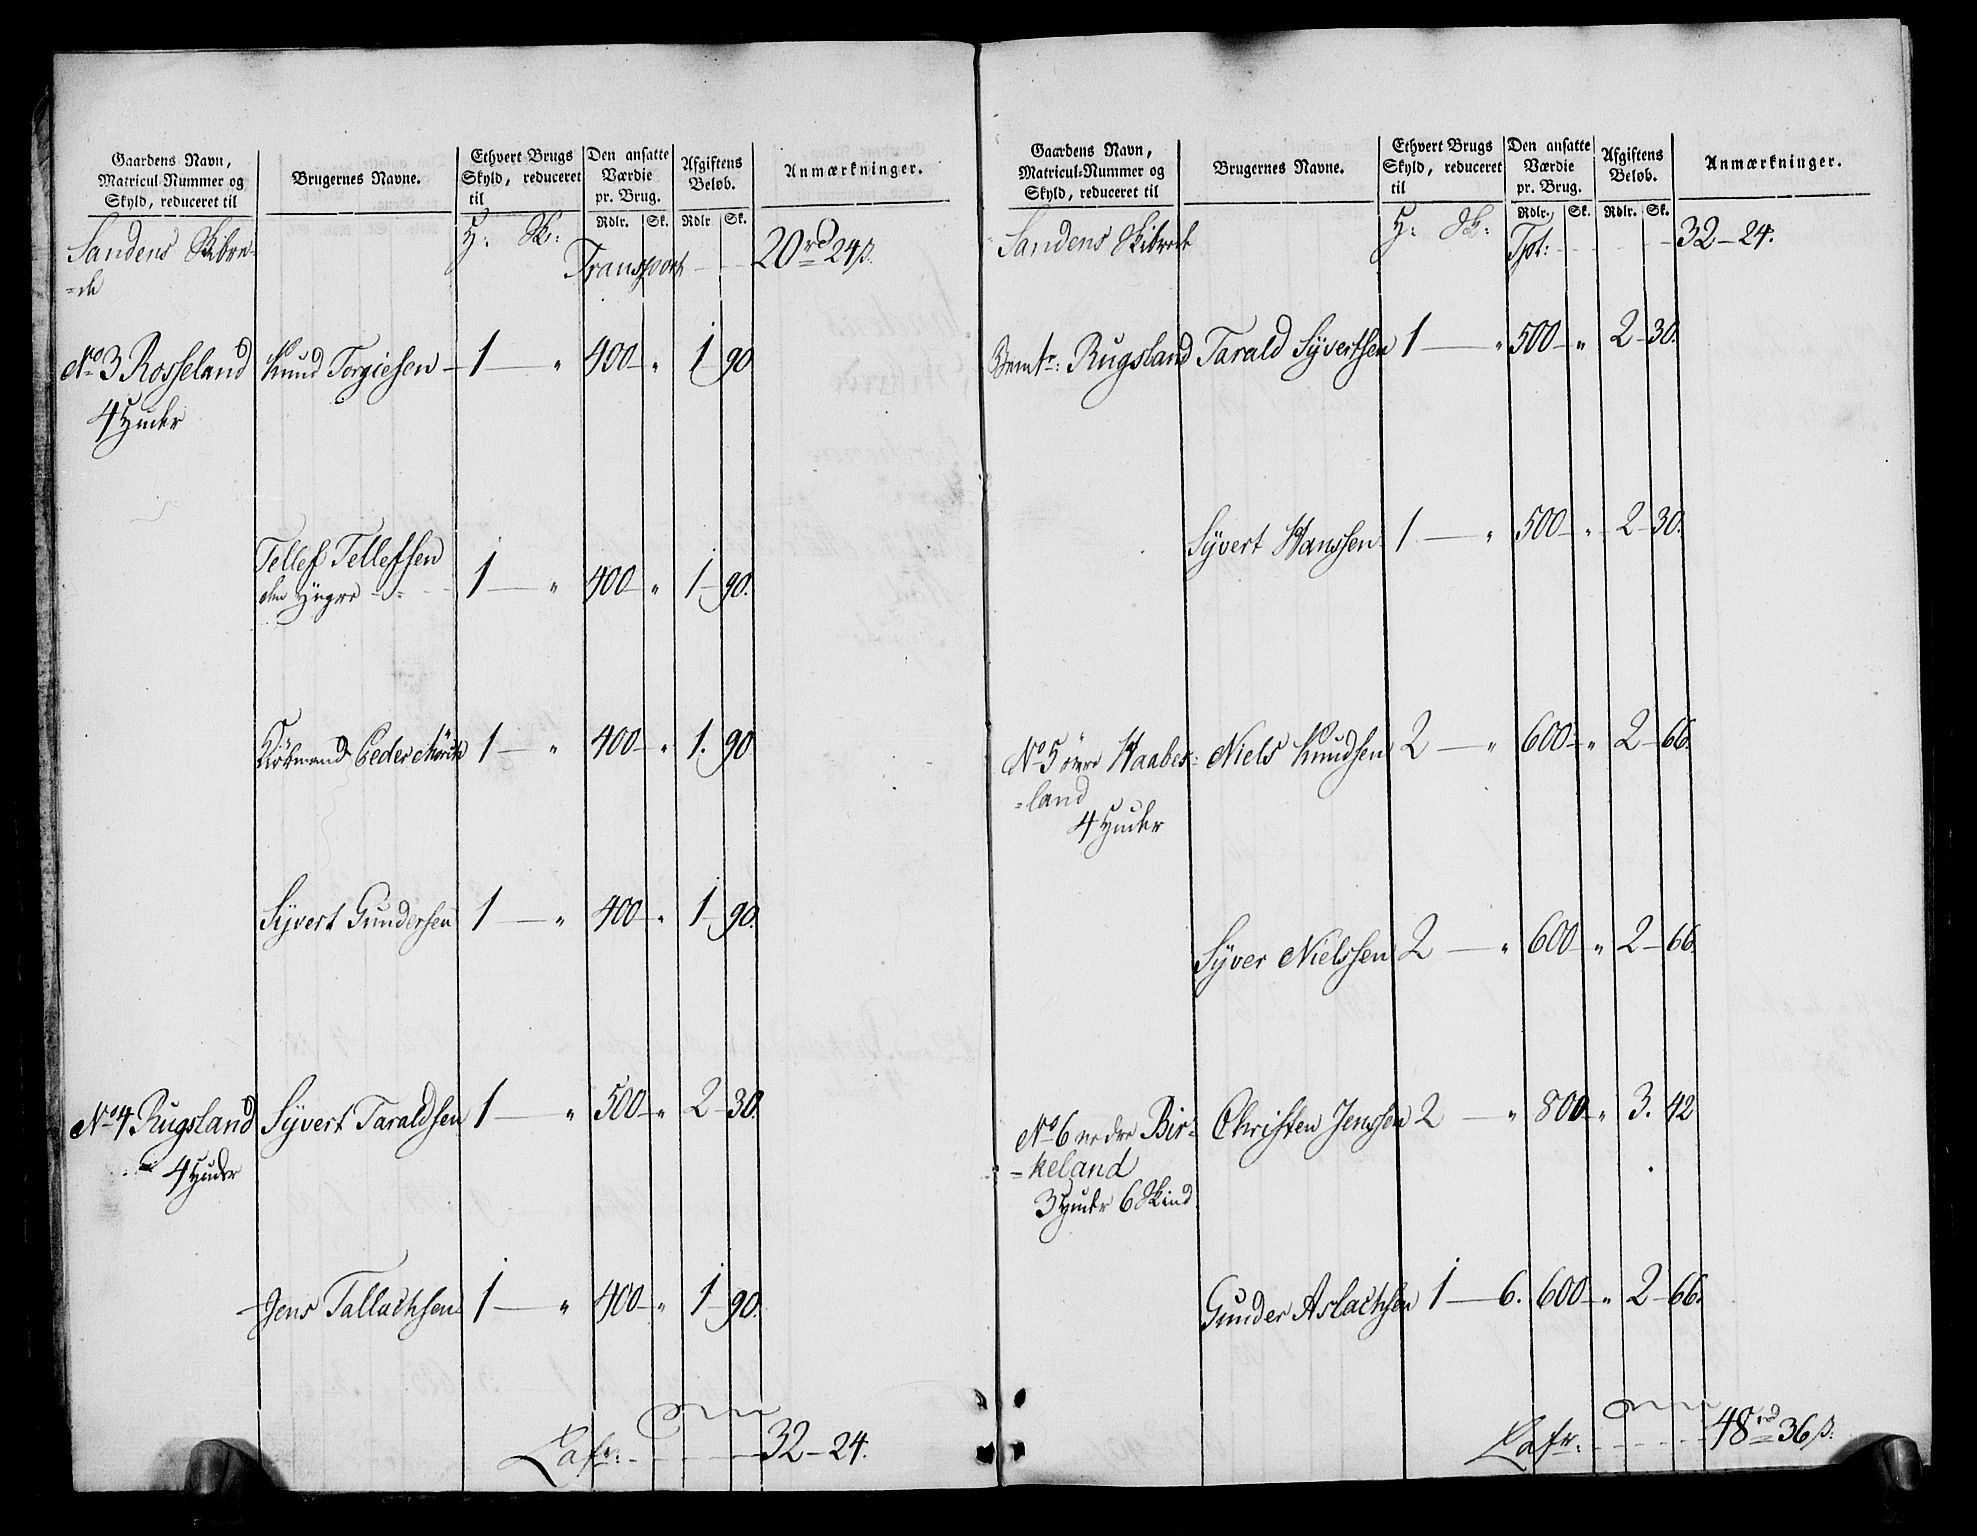 Gaardens Navn,
Matricul-Nummer og
Skyld, reduceret til
Brugernes Navne.
Ethvert Brugs
Skyld, reduceret
til
Den ansatte
Værdie
pr. Brug.
Rdlr. Sk.
Afgiftens
Beløb.
Rdlr Sk.
Anmærkninger.
Sandens Skibre-
=de
H: Sk:
Transport - - - 20 rd 24 s.
No 3 Rosseland Knud Tergiesen 1 — " 400 " 1 90
4 Huder
Tellef Tellefsen
den Yngre - - - 1 — " 400 " 1 90.
Kiöbmand Peder Mörch 1 — " 400 " 1. 90
Syvert Gundersen 1 — " 400 " 1 90.
No 4 Rugsland Syvert Taraldsen 1 — " 500 " 2 30.
4 Huder
Jens Tallachsen 1 — " 400 " 1 90.
Lafr: - - - 32 - 24.
Gaardens Navn,
Matricul-Nummer og
Skyld, reduceret til
Brugernes Navne.
Ethvert Brugs
Skyld, reduceret
til
Den ansatte
Værdie
pr. Brug.
Rdlr. Sk.
Afgiftens
Beløb.
Rdlr. Sk.
Anmærkninger.
Sandens Skibrede
H: Sk:
Tpt: - - - 32 - 24.
Bemte: Rugsland Tarald Syvertsen 1 — " 500 " 2 - 30.
Syvert Hanssen 1 — " 500 " 2 - 30.
No 5 övre Haabes= Niels Knudsen 2 — " 600 " 2 - 66.
=land
4 Huder
Syver Nielssen 2 — " 600 " 2 - 66.
No 6 nedre Bir= Christen Jenssen 2 — " 800 " 3. 42
=keland
3 Huder 6 Skind
Gunder Aslachsen 1 — 6. 600 " 2 - 66.
Lafr: - - - 48 rd 36 s: